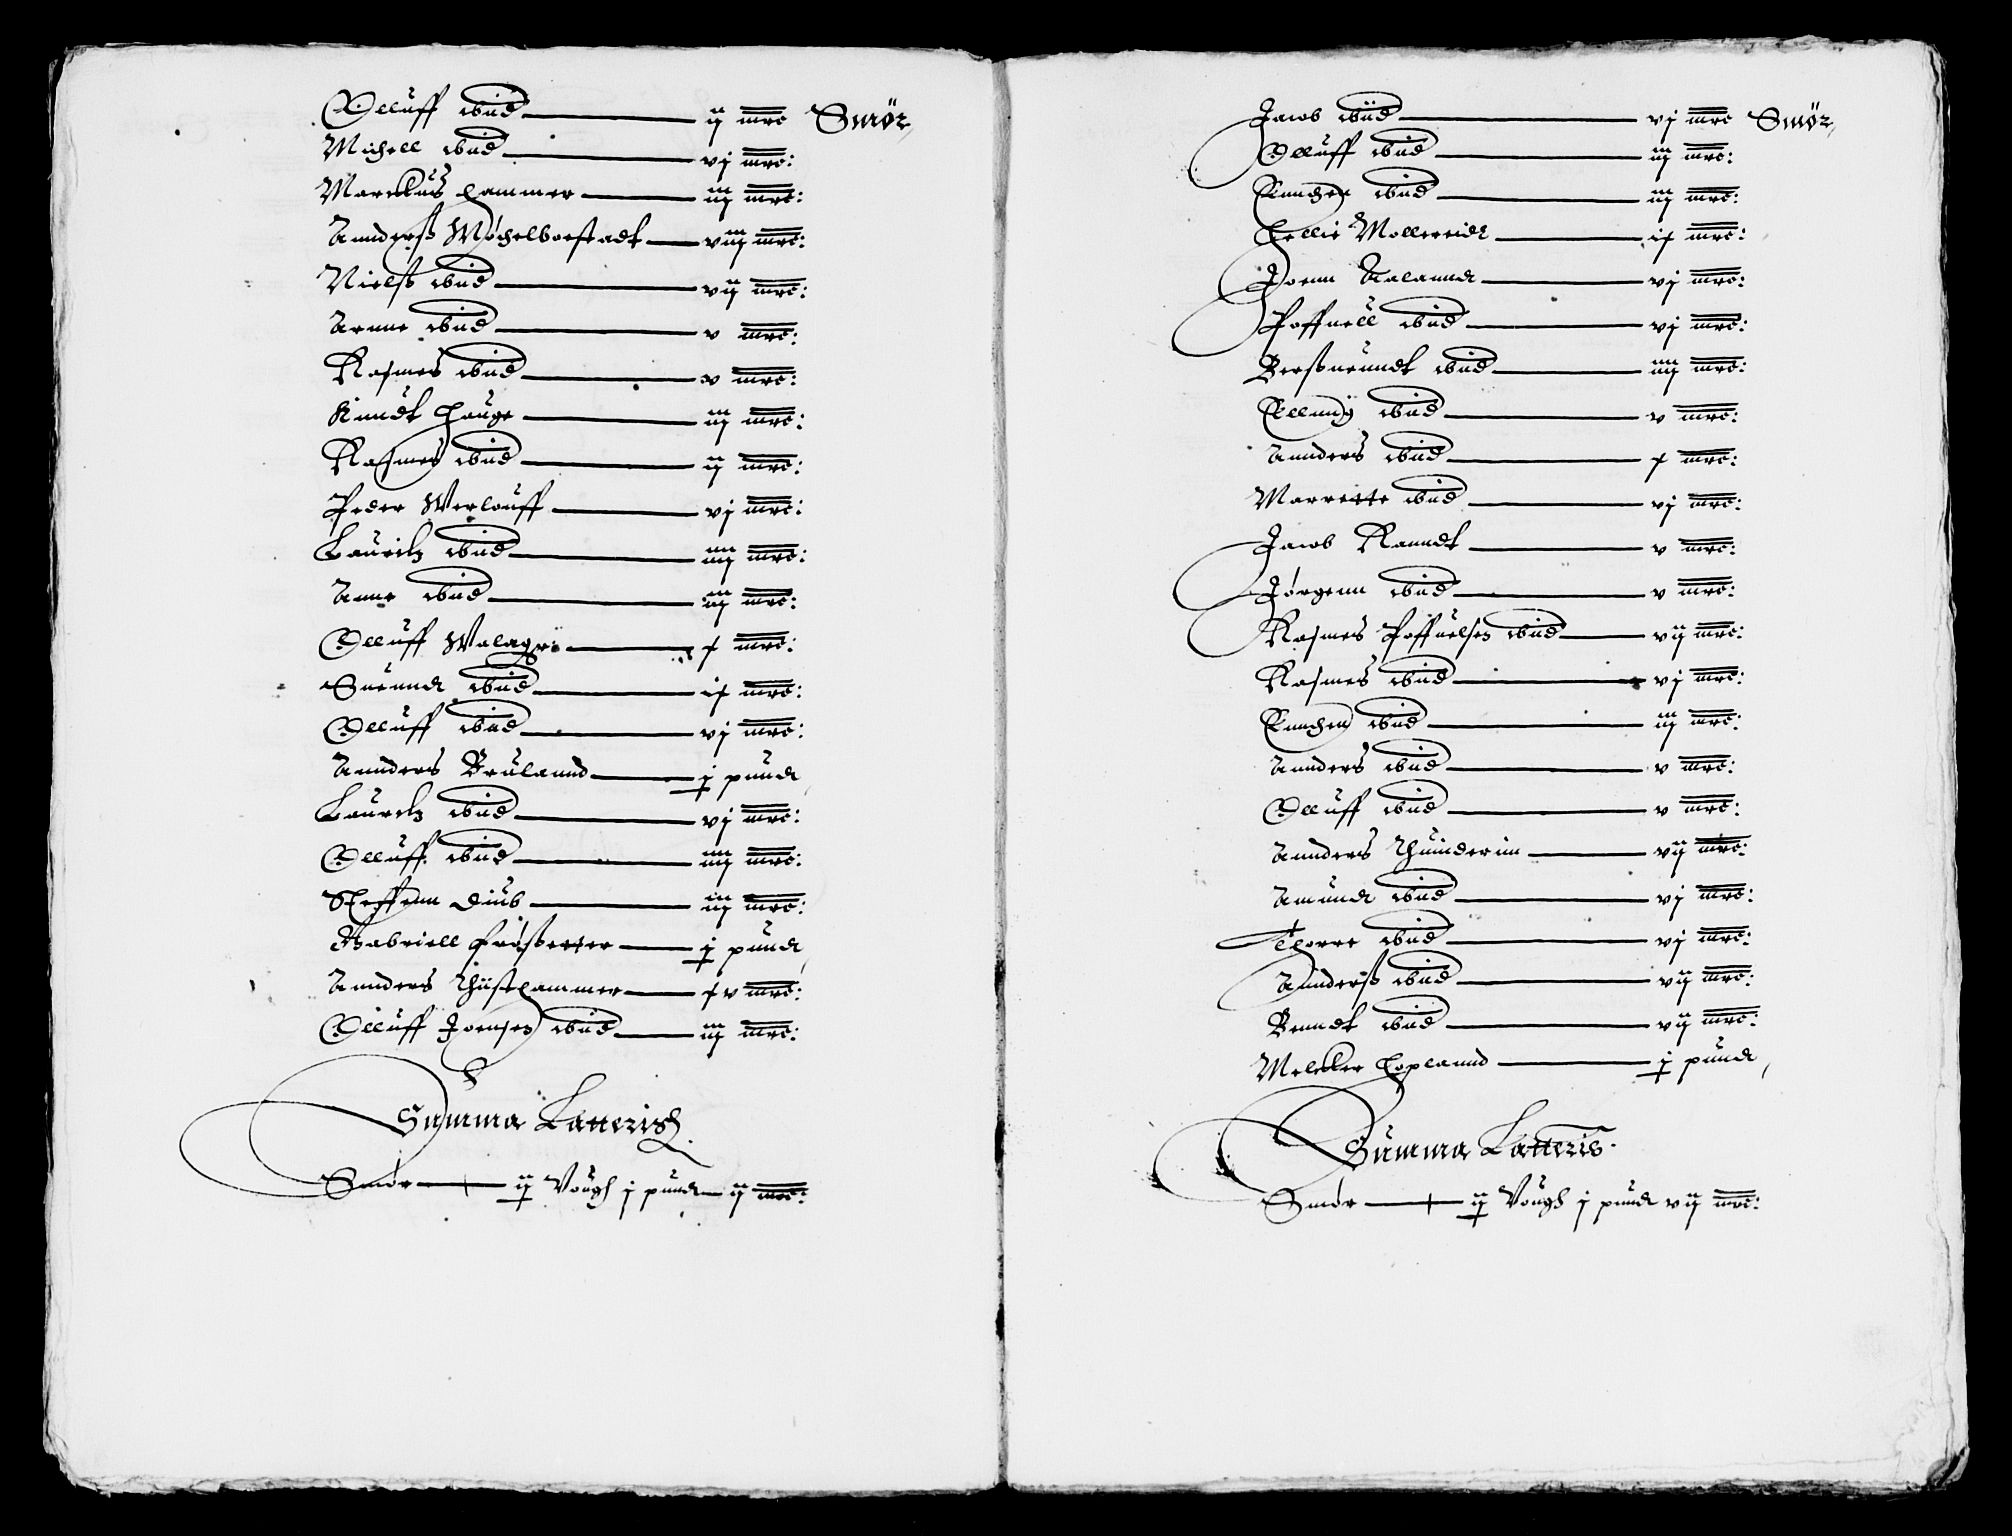 Olluff ibid ij mrc Smør
Michell ibid vj mrc:
Marckus Hammer iij mrc:
Annders Møchelborstadt viij mrc:
Nielss ibid vij mrc:
Arnne ibid v mrc:
Rasmes ibid v mrc:
Knudt Houge iij mrc:
Rasmes ibid ij mrc:
Peder Werlouff vj mrc:
Lauritz ibid iiij mrc:
Anne ibid iij mrc:
Olluff Walager j mrc:
Suennd ibid ij mrc:
Olluff ibid vj mrc:
Annders Brulannd j pund
Lauritz ibid vj mrc:
Olluff ibid iiij mrc:
Steffenn Diub iij mrc:
Gabriell Frøsetter j pund
Annders Thusthammer j v mrc:
Olluff Joensen ibid iij mrc:
Summa Latterisch
Smør ij Vough j pund ij mrc:
Jacob ibid vj mrc Smør
Olluff ibid iij mrc:
Ennder ibid iij mrc:
Hellie Mollereid ij mrc:
Joenn Aalannd vj mrc:
Poffuell ibid vj mrc:
Berstuenndt ibid iiij mrc:
Elling ibid v mrc:
Annders ibid j mrc:
Marrette ibid vj mrc:
Jacob Ranndt v mrc:
Jørgenn ibid v mrc:
Rasmes Poffuelsen ibid vij mrc:
Rasmes ibid vj mrc:
Ennden ibid iij mrc:
Annders ibid v mrc:
Olluff ibid v mrc:
Annders Thuinderim vij mrc:
Amund ibid vj mrc:
Thorre ibid vj mrc:
Annderss ibid vij mrc:
Benndt ibid vij mrc:
Melcker Hoplannd j pund
Summa Latteris
Smør ij Vough j pund vij mrc: